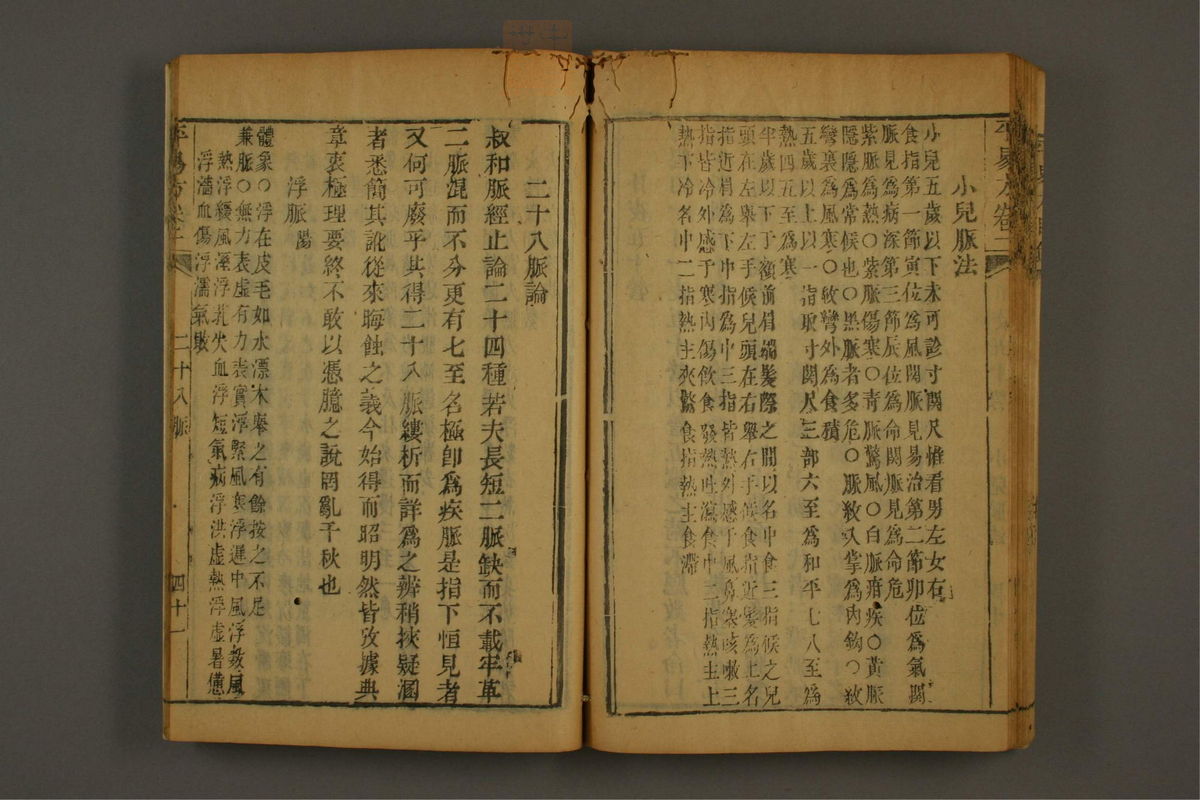 小兒脈法
小兒五歲以下未可診寸關尺惟看男左女右
食指第一節寅位為風關脈見易治第二節卯位為氣關
脈見為病深第三節辰位為命關脈見為命危
紫脈為熱○紫脈傷寒○青脈驚風○白脈疳疾○黃脈
隱隱為常候也○黑脈者多危○脈紋入掌為內鈎○紋
彎裏為風寒○紋彎外為食積
五歲以上以一指取寸關尺三部六至為和平七八至為
熱四五至為寒
半歲以下于額前眉端髮際之間以名中食三指候之兒
頭在左舉左手候兒頭在右舉右手候食指近髮為上名
指近眉為下中指為中三指皆熱外感于風鼻寒咳嗽三
指皆冷外感于寒內傷飲食發熱吐瀉食中二指熱主上
熱下冷名中二指熱主夾驚食指熱主食滯
二十八脈論
叔和脈經止論二十四種若夫長短二脈缺而不載牢革
二脈混而不分更有七至名極即為疾脈是指下恒見者
又何可廢乎共得二十八脈縷析而詳為之辨稍挾疑溷
者悉簡其訛從來晦蝕之義今始得而昭明然皆攷據典
章衷極理要終不敢以憑臆之說罔亂千秋也
浮脈 陽
體象○浮在皮毛如水漂木舉之有餘按之不足
兼脈○無力表虛有力表實浮緊風寒浮遲中風浮數風
熱浮緩風溼浮芤失血浮短氣病浮洪虛熱浮虛暑憊
浮濇血傷浮濡氣敗
平易方卷二
二十八脈
四十一